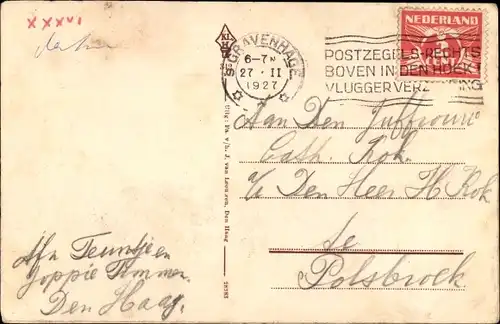 XXXVI
'S-GRAVENHAGE
6-7 N
27 · II
1927
POSTZEGELS RECHTS
BOVEN IN DEN HOEK!
VLUGGER VERZ
NEDERLAND
Aan Den Juffrouw
Cath. Kok.
c/o Den Heer H Kok
te
Polsbroek.
Afz Teuntje en
Joppie Timmer.
Den Haag.
Uitg.: Fa. v/h. J. van Leeuwen, Den Haag